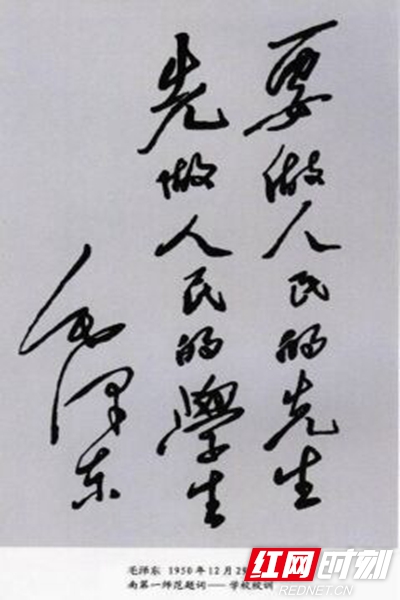 要做人民的先生
先做人民的學生
毛泽东
毛泽东 1950年12月29
南第一师范题词——学校校训
红网时刻
REDNET.CN